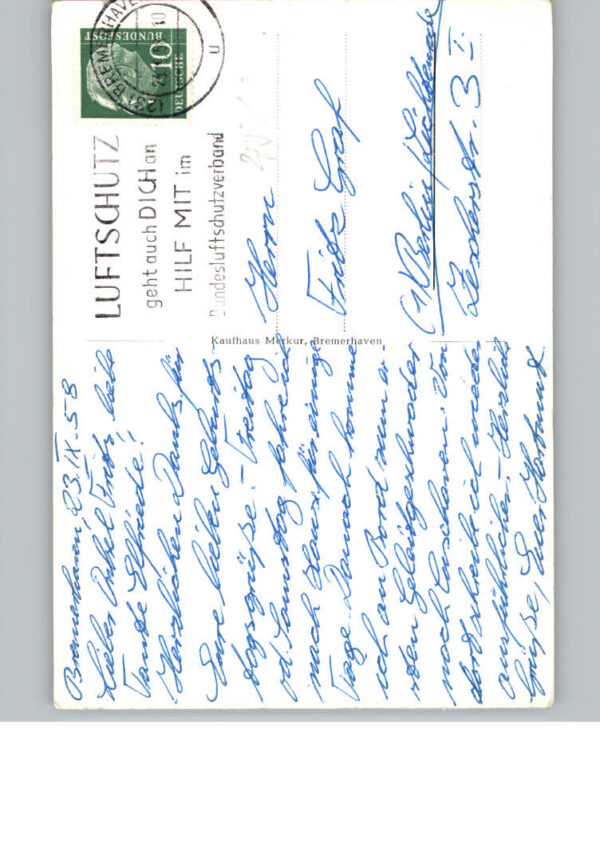 Bremerhaven, 23. IX. 58
Lieber Onkel Fritz, liebe
Tante Elfriede!
Herzlichen Dank für
Eure lieben Geburts-
tagsgrüße. - Freitag
od. Samstag fahre ich
nach Hause für einige
Tage. Danach komme
ich an Bord zum er-
sten Geleitgeschwader
nach Cuxhaven. Von
dort schreibe ich wieder
ausführlicher. - Herzliche
Grüße, Euer Hartmut
Kaufhaus Merkur, Bremerhaven
LUFTSCHUTZ
geht auch DICH an
HILF MIT im
Bundesluftschutzverband
BREMERHAVEN
u
DEUTSCHE
BUNDESPOST
10
Herrn
Fritz Graf
(1) Berlin/Lichterfelde
3 I.